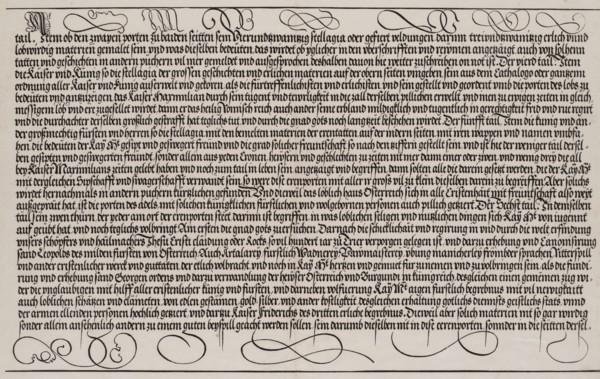 tail. Item ob den zwayen porten zu baiden seitten sein Vierundzwainzig stellagia oder gefiert veldungen darinn treiundzwaintzig erlich vnnd
lobwirdig materien gemalet sein vnd was dieselben bedeuten das wirdet ob yglicher in den vberschrifften vnd reymen angezaigt auch von solhenn
tatten vnd geschichten in andern puchern vil mer gemeldet vnd außgesprochen deshalben dauon hie weiter zuschreiben on not ist. Der vierd tail. Seien
die Kaiser vnd Kunig so die stellagia der grossen geschichten vnd erlichen materien auf der obern seiten vmgeben sein aus dem Cathalogo oder gantzenn
ordnung aller Kaiser vnd Kunig außerwelt vnd geborn als die furtreffenlichsten vnd erlichsten vnd sein gestelt vnd geordent vmb die porten des lobs zu
bedeuten vnd anzuzaigen das Kaiser Maximilian durch sein tugent vnd teurligkait in die zall derselben pillichen erwelt vnd inen zu ewigen zeiten in gleich
messigem lob vnd er zugesellt wirdet dann er das heilig Romisch reich auch ander sein erbland mildigklich vnd tugentlich in gerechtigkeit frid vnd rue regirt
vnd die durchachter derselben großlich gestrafft hat teglichs tut vnd durch die gnad gots noch langzeit beschehen wirdet. Der funfft tail. Sein die kunig an
der großmechtig fursten vnd herren so die stellagia mit den bemelten materien der erentatten auf der indern seiten mit iren wappen vnd namen vmbfa
hen die bedeuten der Kay Mt gesipt vnd geswegert freund vnd die grad solicher freuntschafft so nach den ziffern gestelt sein vnd ist hie der weniger tail dersel
ben gesipten vnd geswegerten freund. sonder allein aus yeden Cronen heysern vnd geschlechten zu zeiten nit mer dann einer oder zwen vnd wenig drey die all
bey Kaiser Maximilians zeiten gelebt haben vnd noch zum tail in leben sein angezaigt vnd begriffen. dann solten alle die darin gesetzt werden. die der Kay Mt
mit dergleichen Sypschafft vnd swagerschafft verwandt sein so were dise erenporten mit aller groß vil zu klein dieselben darein zu begreiffen Aber solichs
wirdet hernachmals in andern puchern kurtzlichen gefunden. Vnd dieweil das loblich haus Osterreich sich in alle Cristenhait mit freuntschafft also weit
außgepraitt hat. ist die porten des adels mit solichen kunigklichen furstlichen vnd wolgebornen personen auch pillich geziert. Der Sechst tail. In demselben
tail sein zwen thurn. der yeder am ort der erenporten steet darin ist begriffen in was loblichen seligen vnd nutzlichen dingen sich Kay Mt von iugent
auf geubt hat vnd noch teglichs volbringt Am ersten die gnad gots zuersuchen. Darnach die schicklichait vnd regirung in vnd durch die welt erfindung
vnsers schopffers vnd hailmachers Jhesu Cristi claidung oder Rocks so vil hundert iar zu Trier verporgen gelegen ist. vnd darzu erhebung vnd Canonisirung
sand Leopolds des milden fursten von Osterreich Auch Artalarey furstlich Waidnerey Pawmaisterey vbung manicherley frombder sprachen Ritterspill
vnd ander cristenlicher werck vnd guttatten der etlich volbracht vnd noch in Kay Mt hertzen vnd gemut furzunemen vnd zu volbringen sein. als die fundi
rung vnd erhebung sand Georgen ordens vnd darzu verwandlung der heyser Osterreich vnd Burgundi in kunigkreich desgleichen einen gemeinen zug wi
der die vnglaubigen mit hilff aller cristenlicher kunig vnd fursten. vnd darneben volfuerung Kay Mt aigen furstlich begrebnus mit vil verewigstifft
auch loblichen schatzen vnd clainoten. von edlen gestainen gold silber. vnd ander kostligkeit desgleichen erhaltung gotlichs diensts geistlichs stats vnnd
der armen ellenden personen hochlich geziert. vnd darzu Kaiser Friderichs des dritten erliche begrebnus. Dieweil aber solich materien mit so gar wirdig
sonder allein ansehenlich andern zu einem guten beyspill geacht werden sollen. sein darumb dieselben mit in dise erenporten sonnder in die seitten dersel